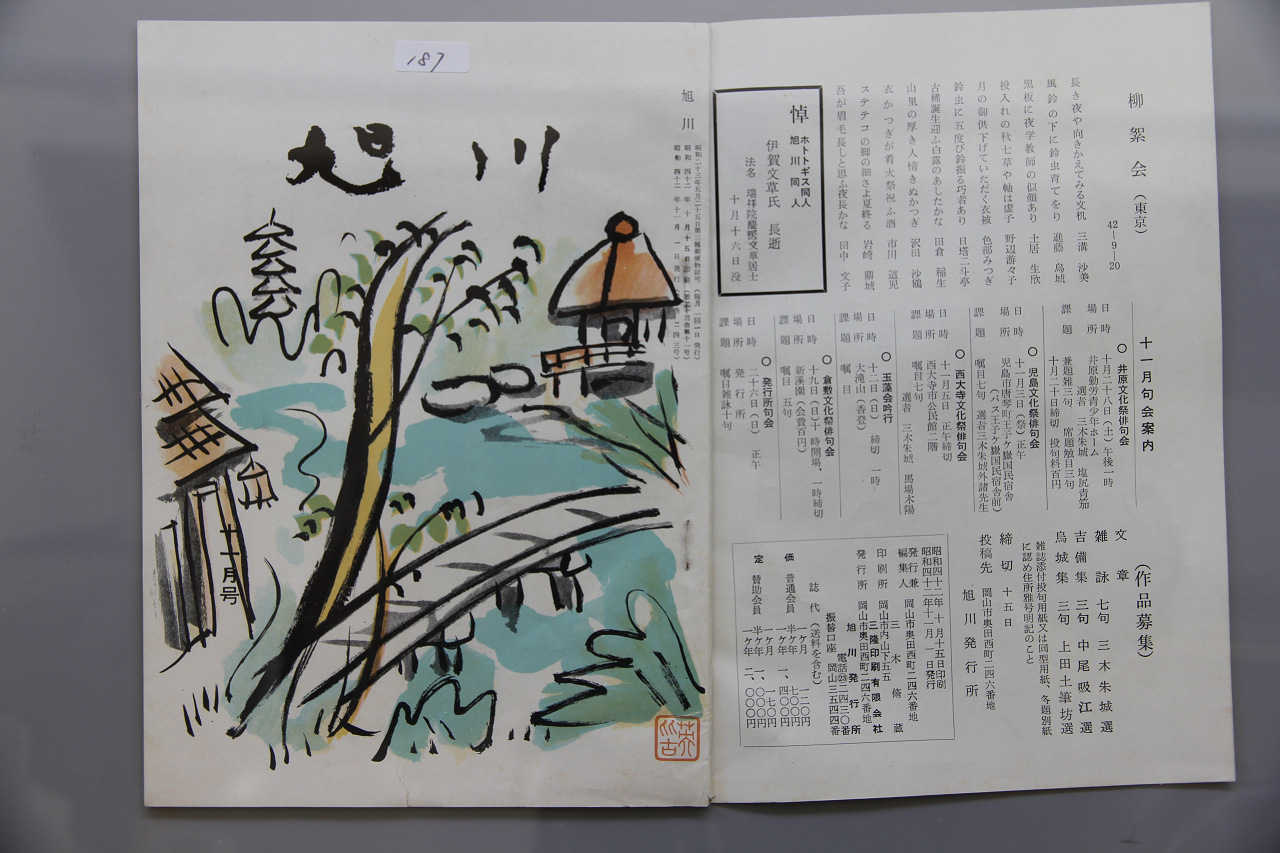 柳絮会（東京）
42-9-20
長き夜や向きかえてみる文机 三溝沙美
風鈴の下に鈴虫育てをり 進藤鳥城
黒板に夜学教師の似顔あり 土居生欣
投入れの秋七草や軸は虚子 野辺游々子
月の御供下げていただく衣被 色部みつぎ
鈴虫に五度び鈴振る巧者あり 日塔二斗亭
古稀誕生迎ふ白露のあしたかな 田倉稲生
山里の厚き人情きぬかつぎ 沢田沙鴎
衣かつぎが肴火祭祝ふ酒 市川道児
ステテコの脚の細さよ夏終る 岩崎鼎城
吾が眉毛長しと思ふ夜長かな 田中文子
悼
ホトトギス同人
旭川同人
伊賀文草氏 長逝
法名 瑞祥院醍
文草居士
十月十六日没
十一月句会案内
○井原文化祭俳句会
日時 十月二十八日（土）午後一時
場所 井原勤労青少年ホーム
選者 三木朱城 塩尻青茄
課題 兼題雑三句 席題触目三句
十月二十日締切 投句料百円
○児島文化祭俳句会
日時 十一月三日（祭）正午
場所 児島市唐琴町王子ヶ嶽国民宿舎
（バス王子ヶ嶽国民宿舎前）
課題 嘱目七句 選者三木朱城外諸先生
○西大寺文化祭俳句会
日時 十一月五日 正午締切
場所 西大寺市公民館二階
選者 三木朱城 馬場木陽
課題 嘱目七句
○玉藻会吟行
日時 十二日（日） 締切 一時
場所 大滝山（香登）
課題 嘱目
○倉敷文化祭俳句会
日時 十九日（日）十時開場、一時締切
場所 新溪園（会費百円）
課題 嘱目 五句
○発行所句会
日時 二十六日（日） 正午
場所 発行所
課題 嘱目雑詠十句
（作品募集）
文章
雑詠 七句 三木朱城選
吉備集 三句 中尾吸江選
烏城集 三句 上田土筆坊選
雑誌添付投句用紙又は同型用紙、冬題別紙
に認め住所雅号明記のこと
締切 十五日
投稿先 岡山市奥田西町二四六番地
旭川発行所
昭和四十二年十月十五日印刷
昭和四十二年十一月一日発行
岡山市奥田西町二四六番地
発行兼編集人 三木脩蔵
岡山市内山下五五
印刷所 三隆印刷有限会社
岡山市奥田西町二四六番地
発行所 旭川発行所
電話㉓二四三〇番
振替口座 岡山三五四四番
誌代（送料を含む）
定価
普通会員
一ヶ月 一二〇円
半ヶ年 七〇〇円
一ヶ年 一、四〇〇円
賛助会員
一ヶ月 一七〇円
半ヶ年 一、〇〇〇円
一ヶ年 二、〇〇〇円
187
旭川
昭和二十三年五月二十五日第三種郵便物認可（毎月一回一日発行）
昭和四十二年十月十五日印刷
昭和四十二年十一月一日発行
旭川
十一月号